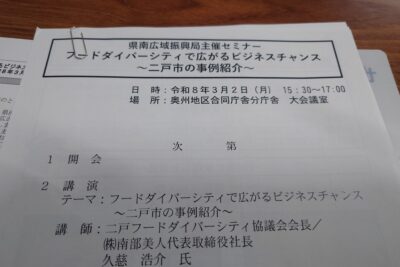 県南広域振興局主催セミナー
フードダイバーシティで広がるビジネスチャンス
～二戸市の事例紹介～
日 時：令和８年３月２日（月） 15：30～17：00
場 所：奥州地区合同庁舎分庁舎 大会議室
次 第
１ 開 会
２ 講 演
テーマ：フードダイバーシティで広がるビジネスチャンス
～二戸市の事例紹介～
講 師：二戸フードダイバーシティ協議会会長／
㈱南部美人代表取締役社長
久慈 浩介 氏